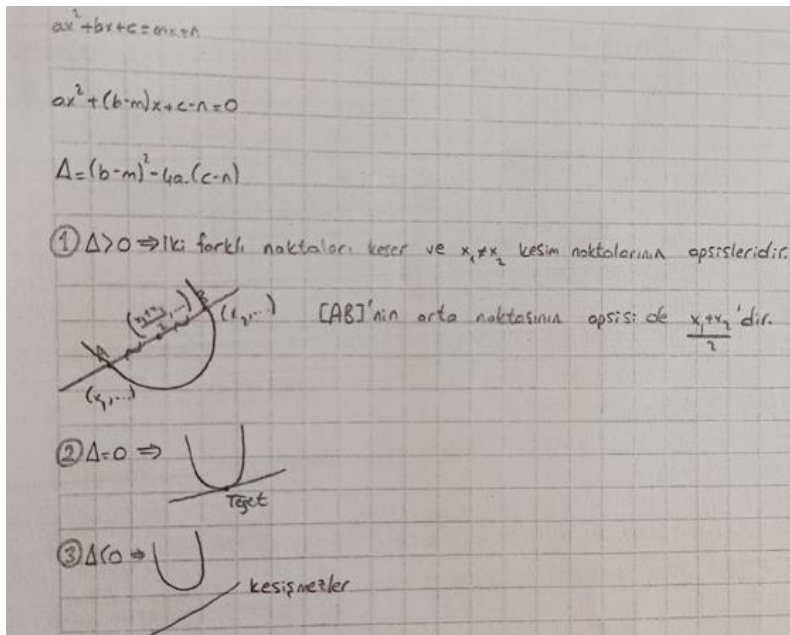 ax²+bx+c=mx+n
ax²+(b-m)x+c-n=0
Δ=(b-m)²-4a.(c-n)
① Δ>0 ⇒ iki farklı noktaları keser ve x₁≠x₂ kesim noktalarının apsisleridir.
(x₁+x₂/2,...)
B
(x₂,...)
[AB]'nin orta noktasının apsisi de x₁+x₂/2'dir.
A
(x₁,...)
② Δ=0 ⇒
Teğet
③ Δ<0 ⇒
kesişmezler